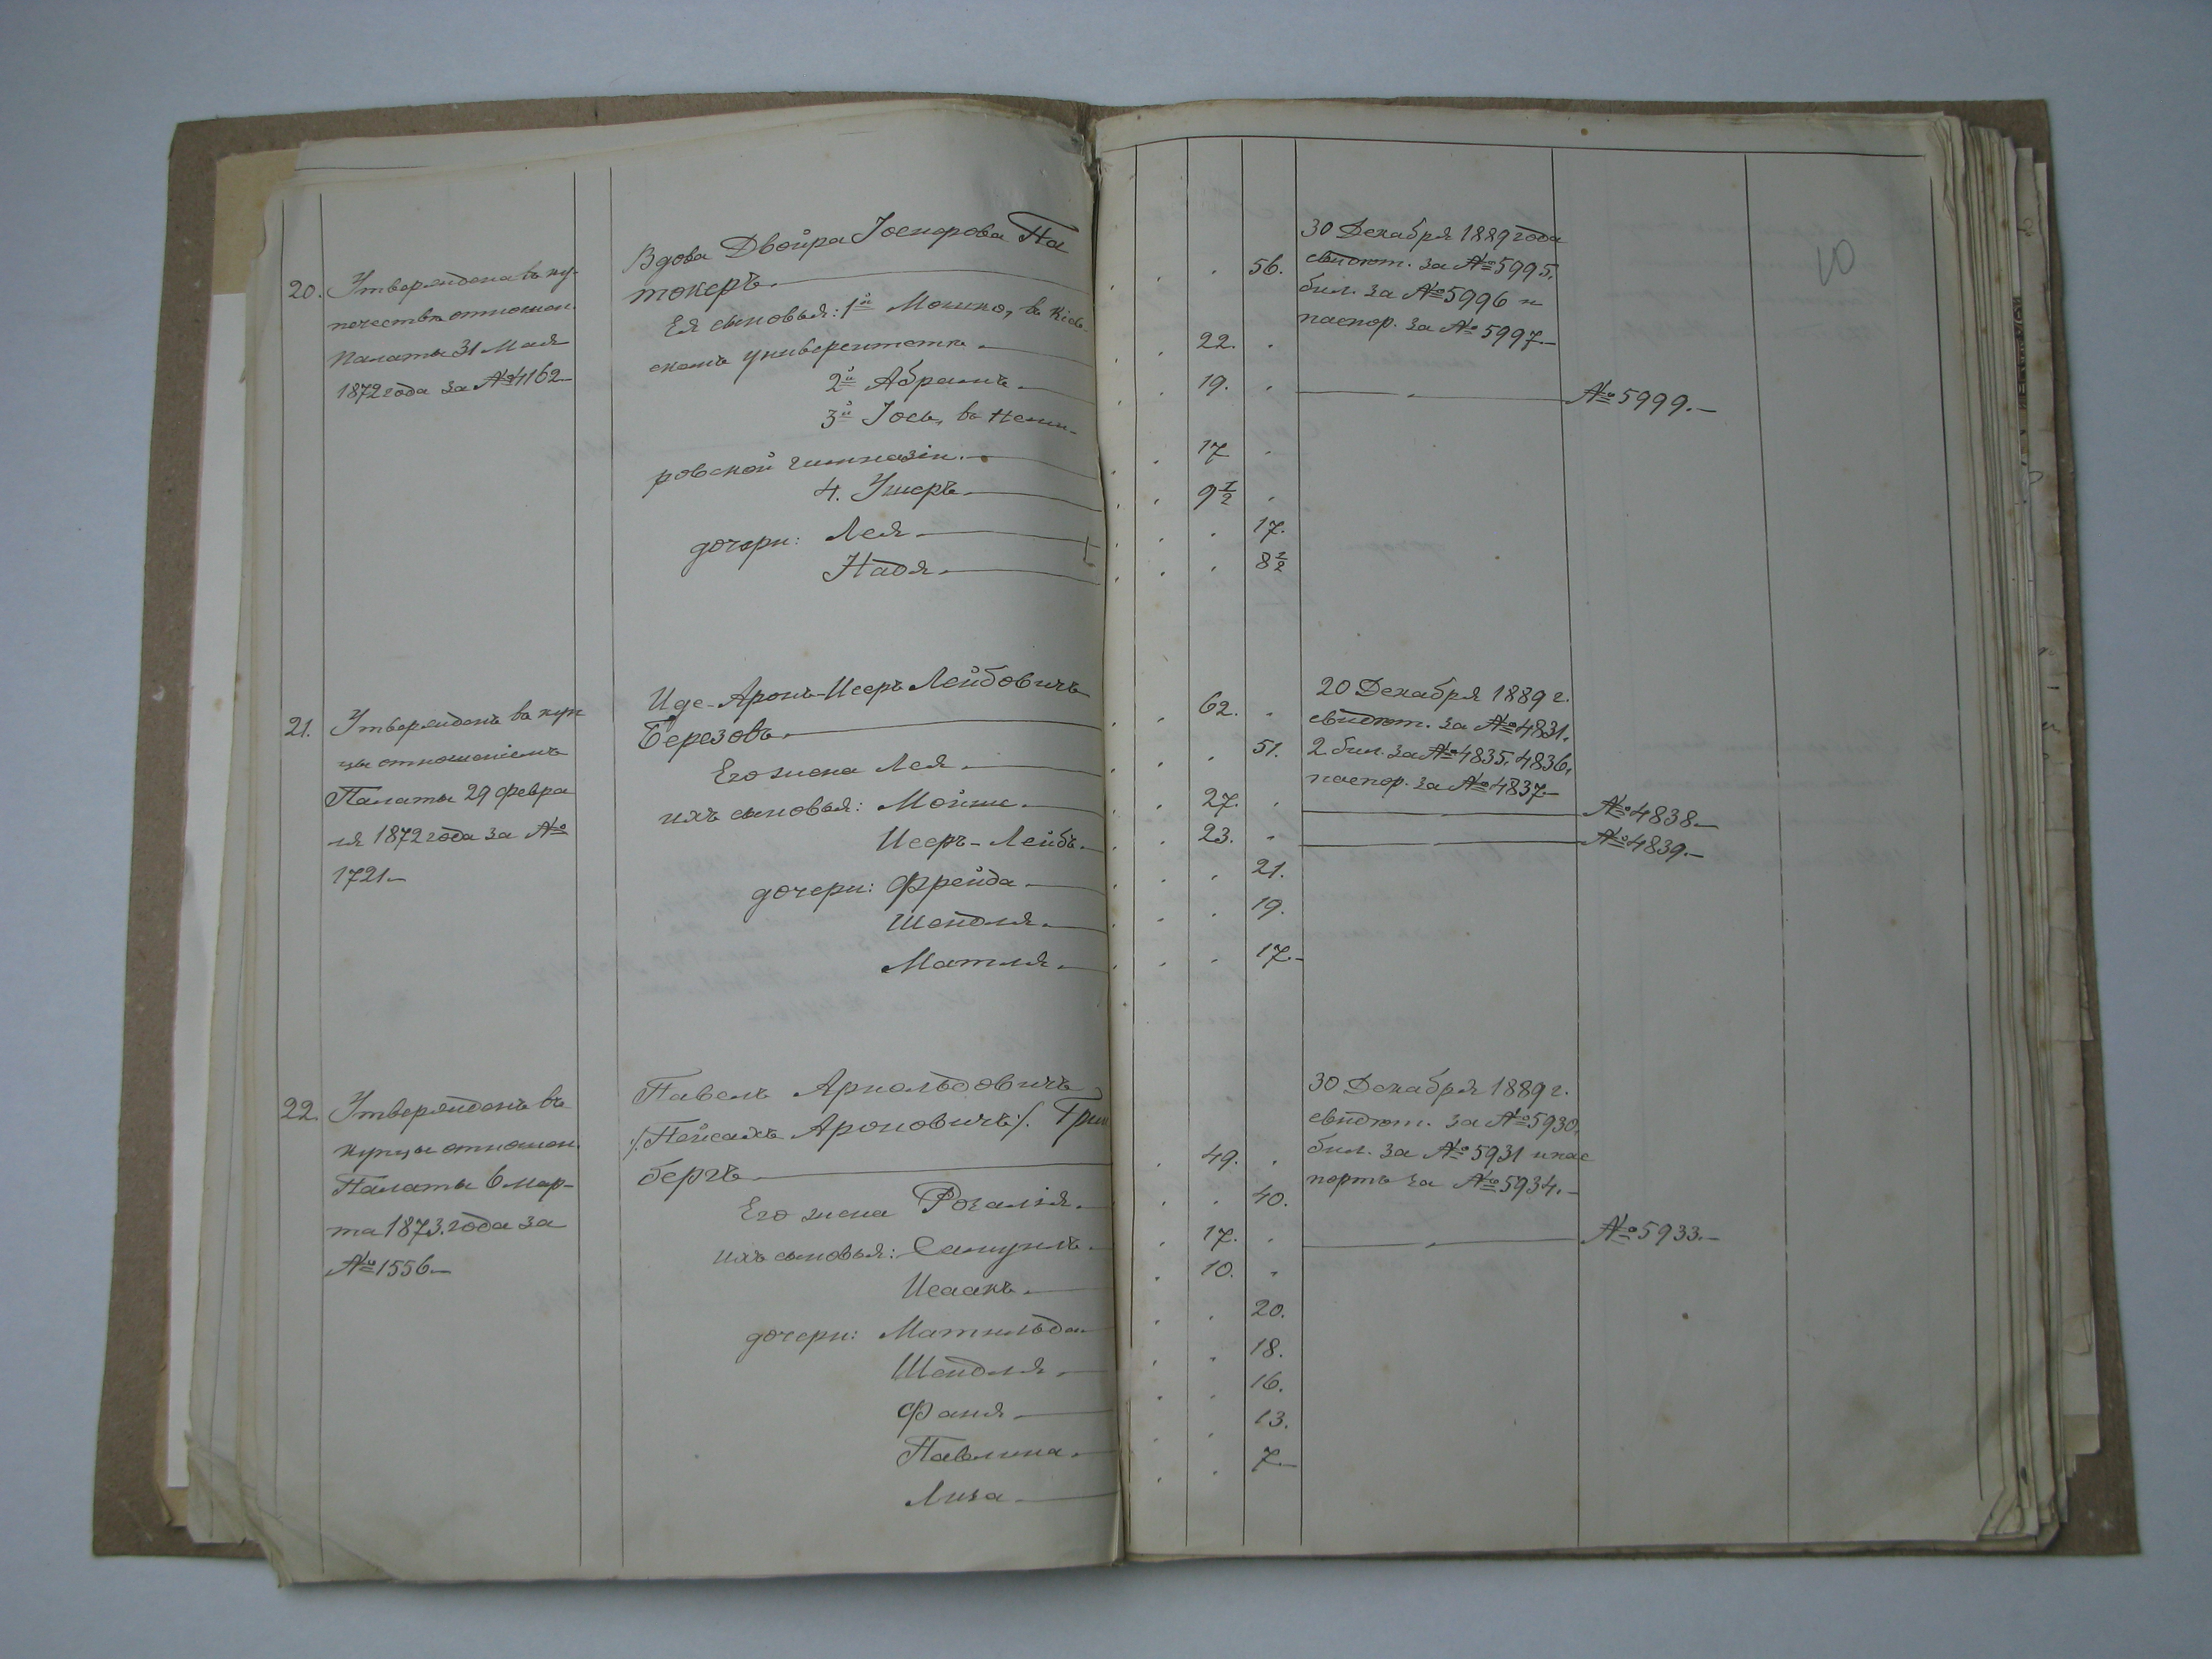 10
20. Утверждена въ ку-
печество отношен.
Палаты 31 Мая
1872 года за №4162
Вдова Двойра Іосифова Па
токеръ. 56.
Ея сыновья: 1й Мошко, въ Кіев-
скомъ университетѣ. 22.
2й Абрамъ. 19.
3й Іось, въ Неми-
ровской гимназіи. 17
4. Ушеръ. 9½
дочери: Лея. 17.
Надя. 8½
30 Декабря 1889 года
свидѣт. за №5995.
бил. за №5996 и
паспор. за №5997.
№5999.
21. Утвержденъ въ куп
цы отношеніемъ
Палаты 29 Февра
ля 1872 года за №
1721
Иде-Аронъ-Исеръ Лейбовичъ
Березовъ. 62.
Его жена Лея. 51.
ихъ сыновья: Мойше. 27.
Исеръ-Лейбъ. 23.
дочери: Фрейда. 21.
Шейдля. 19.
Матля. 17.
20 Декабря 1889 г.
свидѣт. за №4831.
2 бил. за №4835, 4836,
паспор. за №4837
№4838.
№4839.
22. Утвержденъ въ
купцы отношен.
Палаты 6 мар-
та 1873 года за
№1556
Павелъ Арнольдовичъ
/:Пейсахъ Ароновичъ:/ Грин
бергъ 49.
Его жена Розалія. 40.
ихъ сыновья: Самуилъ. 17.
Исаакъ. 10.
дочери: Матильда 20.
Шейдля. 18.
Фаня. 16.
Павлина. 13.
Лиза. 7.
30 Декабря 1889 г.
свидѣт. за №5930.
бил. за №5931 и пас
портъ за №5934.
№5933.